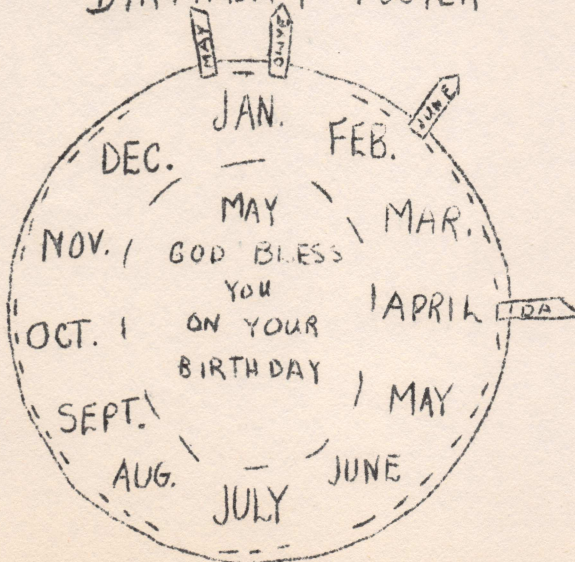 BIRTHDAY POSTER
MAY
OLIVE
JUNE
IDA
JAN.
FEB.
MAR.
APRIL
MAY
JUNE
JULY
AUG.
SEPT.
OCT.
NOV.
DEC.
MAY
GOD BLESS
YOU
ON YOUR
BIRTHDAY